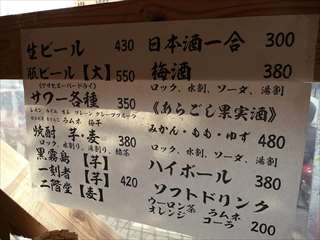 生ビール 430
瓶ビール【大】 550
(アサヒスーパードライ)
サワー各種 350
レモン、ライム、カルピス、プレーン、グレープフルーツ
ラムネ 梅干
焼酎 芋・麦 380
ロック、水割り、お湯割り、緑茶
黒霧島【芋】
一刻者【芋】 420
二階堂【麦】
日本酒一合 300
梅酒 380
ロック、水割、ソーダ、湯割
《あらごし果実酒》
みかん・もも・ゆず 480
ロック、水割、ソーダ、湯割
ハイボール 380
ソフトドリンク
ウーロン茶 ラムネ
オレンジ コーラ 200